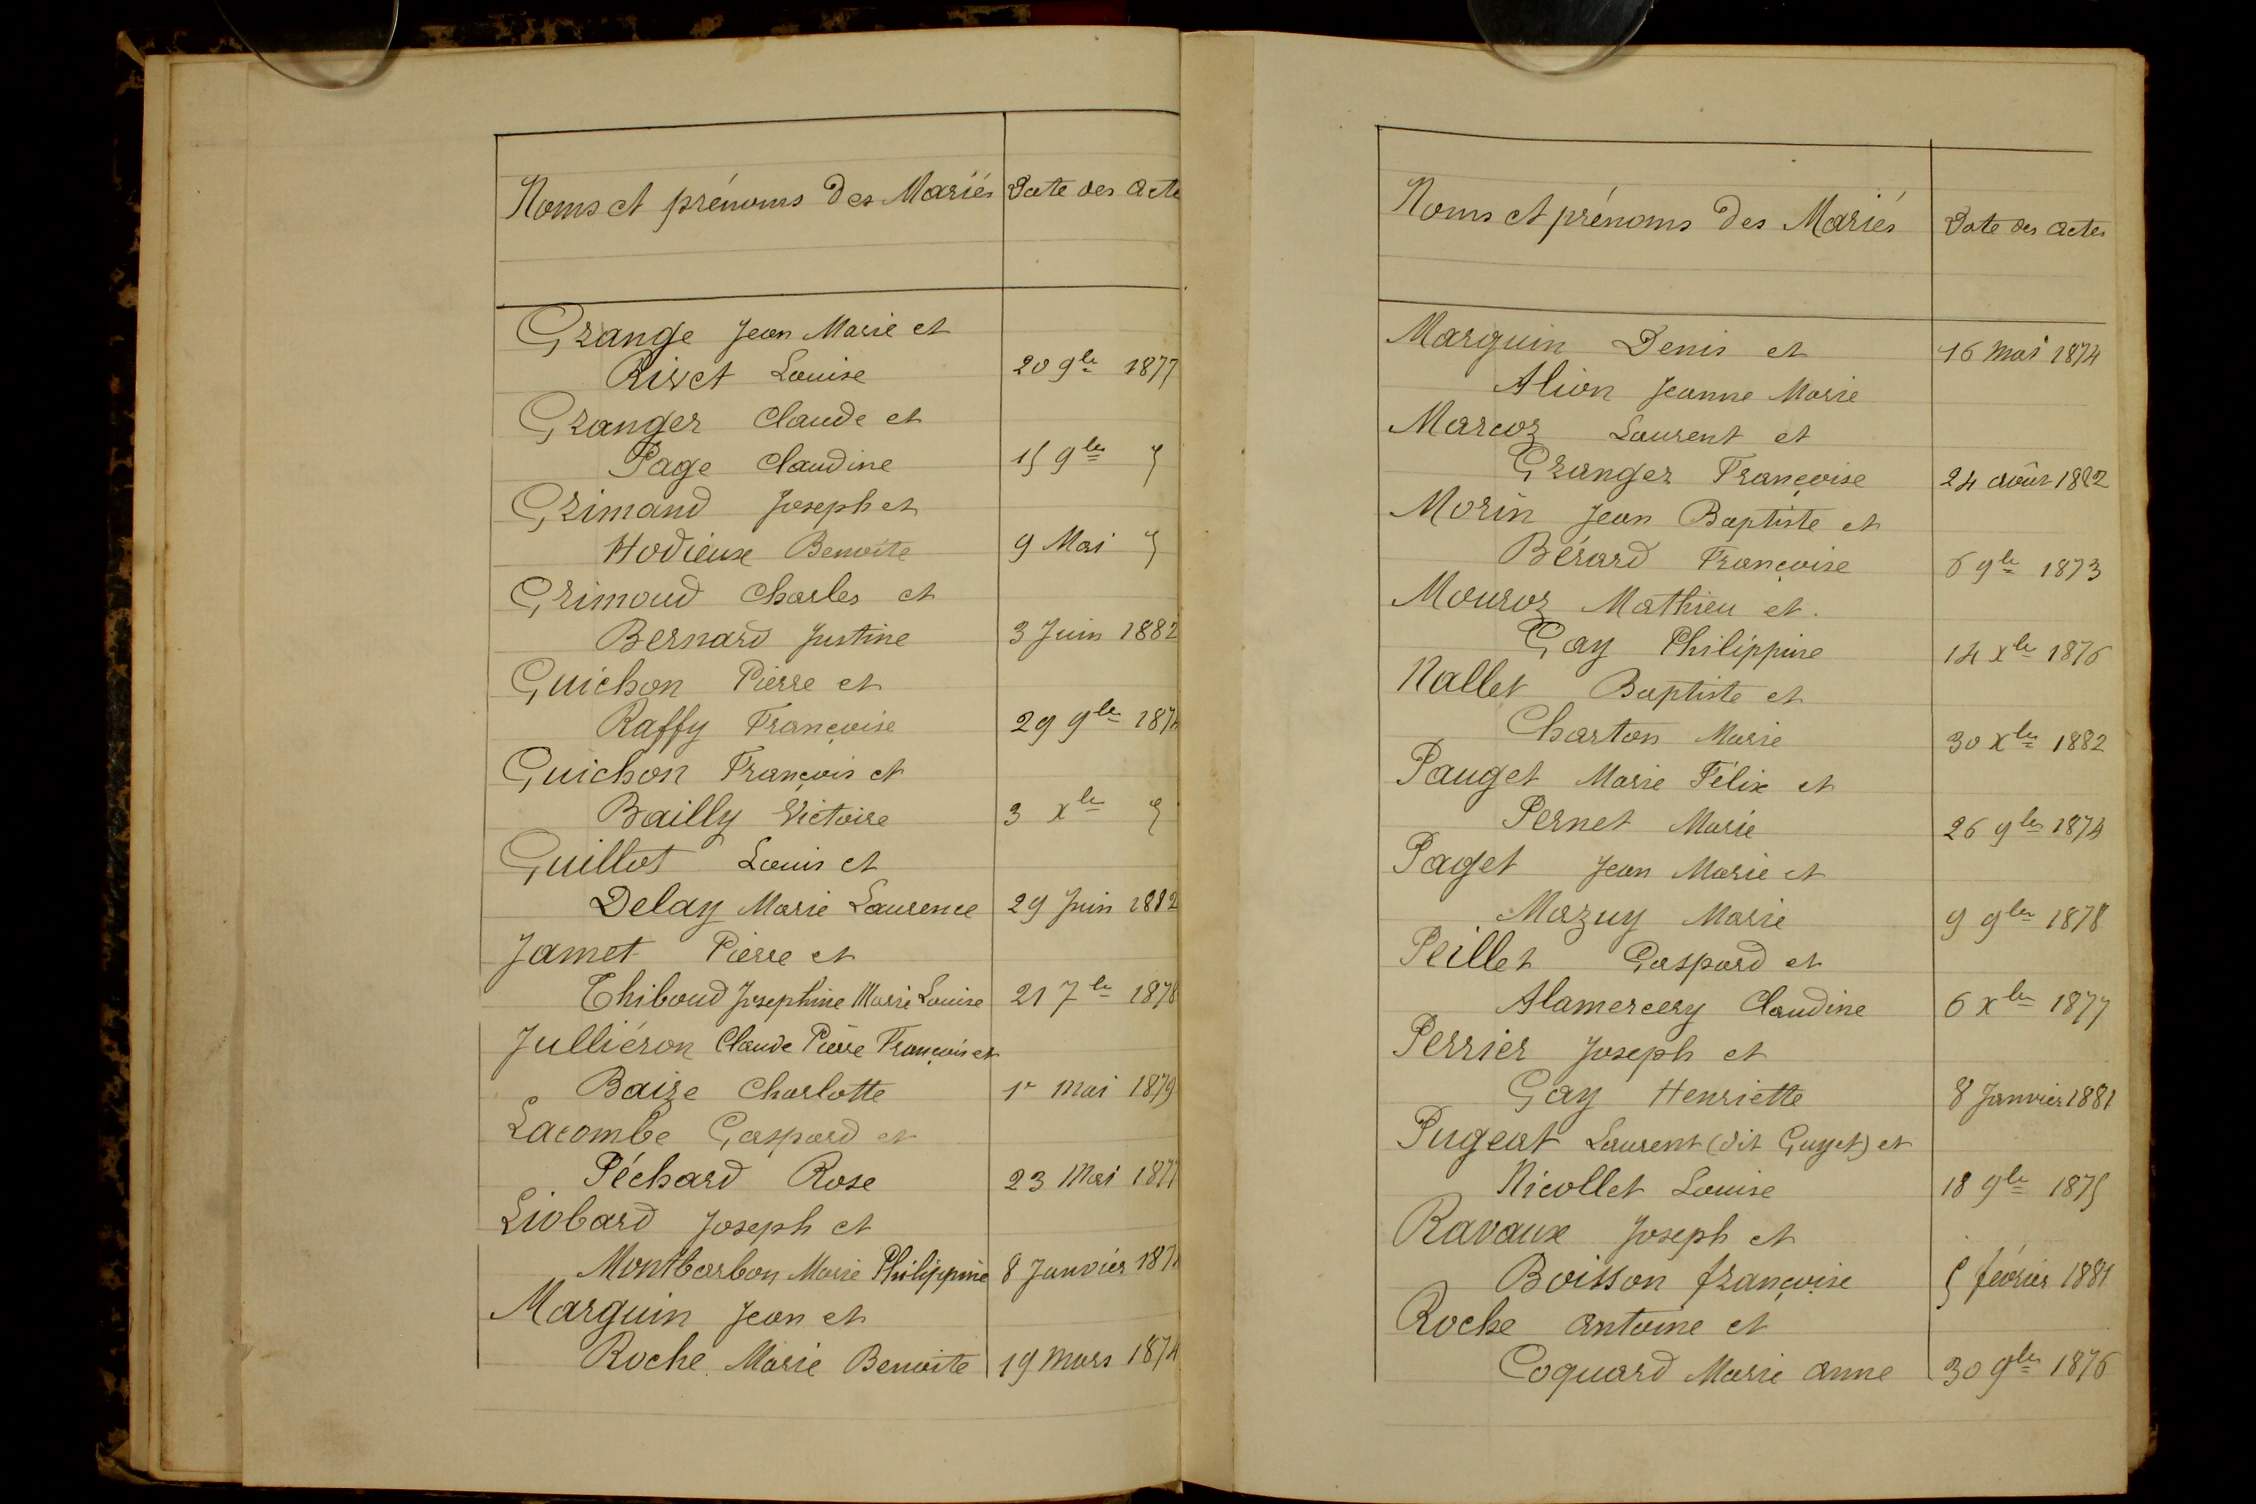 Noms et prénoms des Mariés Date des Acte
Grange Jean Marie et
Rivet Louise 20 9bre 1877
Granger Claude et
Page Claudine 15 9bre "
Grimand Joseph et
Hodieux Benoite 9 Mai "
Grimoud Charles et
Bernard Justine 3 Juin 1882
Guichon Pierre et
Raffy Françoise 29 9bre 187
Guichon François et
Bailly Victoire 3 xbre "
Guillot Louis et
Delay Marie Laurence 29 Juin 1882
Jamet Pierre et
Thiboud Josephine Marie Louise 21 7bre 1878
Julliéron Claude Pierre François et
Baize Charlotte 1r mai 1879
Lacombe Gaspard et
Péchard Rose 23 Mai 1877
Liobard Joseph et
Montbarbon Marie Philippine 8 Janvier 187
Marguin Jean et
Roche Marie Benoite 19 Mars 1874
Noms et prénoms des Mariés Date des Actes
Marguin Denis et 16 Mai 1874
Alion Jeanne Marie
Marcoz Laurent et
Granger Françoise 24 août 1882
Morin Jean Baptiste et
Bérard Françoise 6 9bre 1873
Mouroz Mathieu et
Gay Philippine 14 xbre 1876
Nallet Baptiste et
Charton Marie 30 xbre 1882
Pauget Marie Félix et
Pernet Marie 26 9bre 1874
Paget Jean Marie et
Mazuy Marie 9 9bre 1878
Peillet Gaspard et
Alamercery Claudine 6 xbre 1877
Perrier Joseph et
Gay Henriette 8 Janvier 1881
Pugeat Laurent (dit Guyet) et
Nicollet Louise 18 9bre 1875
Ravaux Joseph et
Boisson françoise 5 février 1881
Roche Antoine et
Coquard Marie Anne 30 9bre 1876